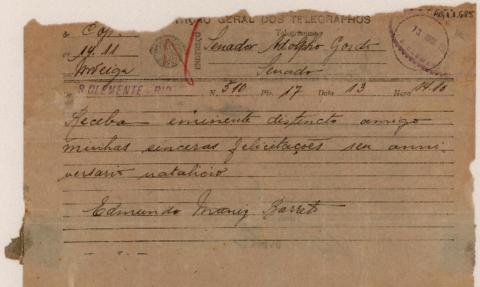 AG.1.1.685
TIÇÃO GERAL DOS TELEGRAPHOS
Telegramma
de Cop.
Senador Adolpho Gordo
as 14.11
ENDEREÇO
Senado
S. CLEMENTE - RIO N. 510 Pls. 17 Data 13 Hora 14.10
Receba eminente distincto amigo
minhas sinceras felicitações seu anni-
versario natalicio
Edmundo Muniz Barreto